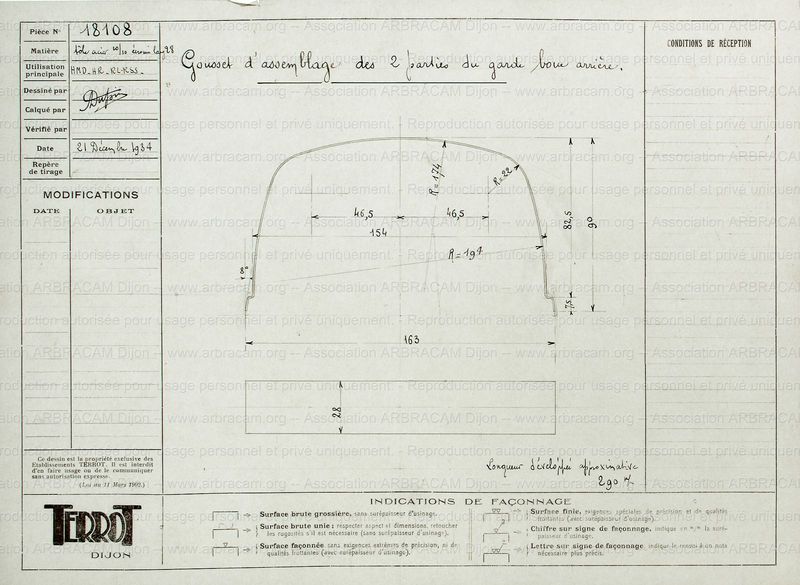 Pièce N° 18108
Matière tôle acier 10/10
Utilisation principale
Dessiné par Dupin
Calqué par
Vérifié par
Date 21 Décembre 1934
Repère de tirage
MODIFICATIONS
DATE OBJET
Gousset d'assemblage des 2 parties du garde boue arrière.
CONDITIONS DE RÉCEPTION
R=174
R=22
46,5 46,5
154
R=197
8°
82,5
90
7,5
163
28
Longueur développée approximative
290
Ce dessin est la propriété exclusive des
Etablissements TERROT. Il est interdit
d'en faire usage ou de le communiquer
sans autorisation expresse.
(Loi du 11 Mars 1902.)
TERROT
DIJON
INDICATIONS DE FAÇONNAGE
Surface brute grossière, sans surépaisseur d'usinage.
Surface brute unie : respecter aspect et dimensions, retoucher
les rugosités s'il est nécessaire (sans surépaisseur d'usinage).
Surface façonnée sans exigences extrêmes de précision, ni de
qualités frottantes (avec surépaisseur d'usinage).
Surface finie, exigences spéciales de précision et de qualités
frottantes (avec surépaisseur d'usinage).
Chiffre sur signe de façonnage, indique en m/m la surépaisseur d'usinage.
Lettre sur signe de façonnage, indique le renvoi à un nota
nécessaire plus précis.
www.arbracam.org -- Association ARBRACAM Dijon -- www.arbracam.org
Reproduction autorisée pour usage personnel et privé uniquement.